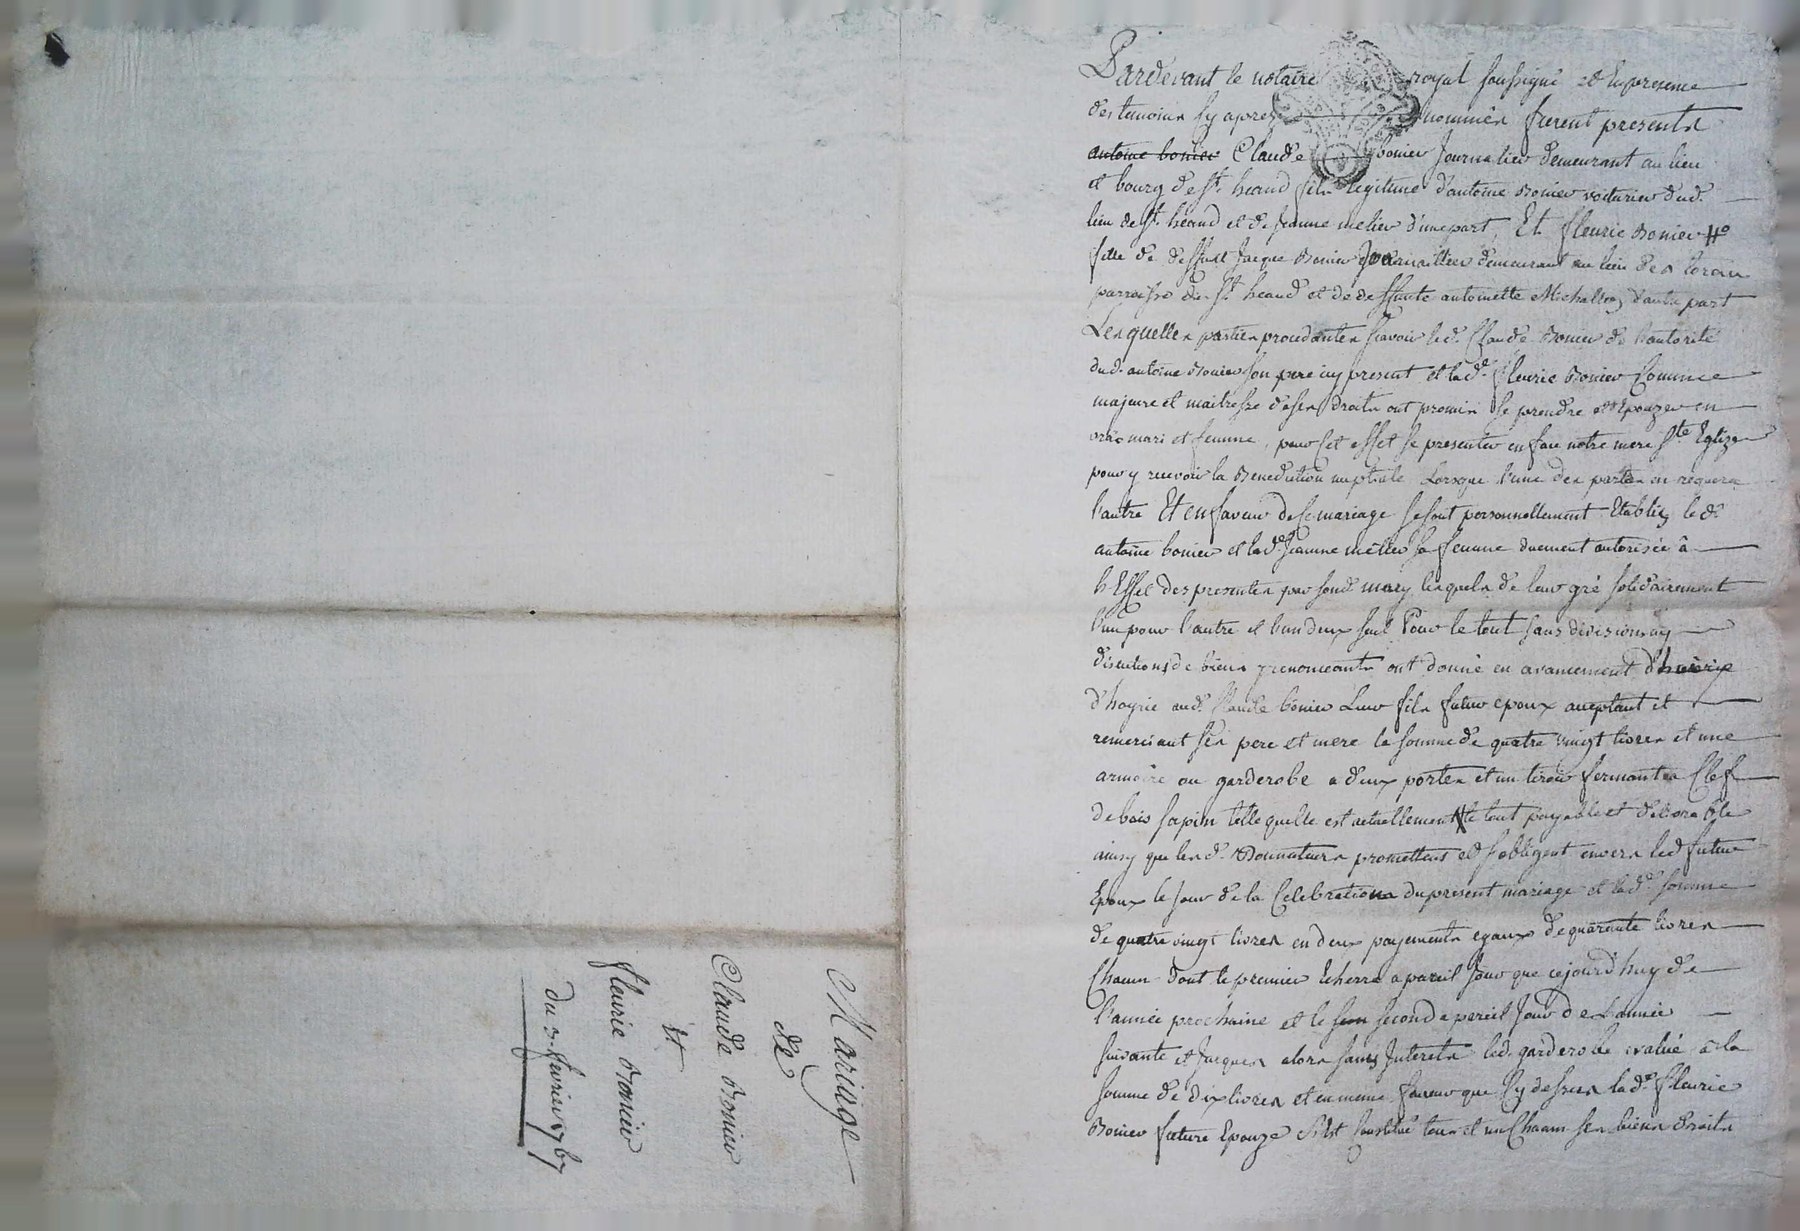 Pardevant le notaire royal soussigné et En presence
des temoins Cy apres nommés furent presents
antoine bonier Claude bonier Journalier demeurant au lieu
et bourg de st. heand fils legitime d'antoine Bonier voiturier dud.
lieu de st. heand et de jeanne melier d'une part, Et fleurie Bonier #o
fille de deffunt Jacque Bonier Journaillier demeurant au lieu des
parroisse du st. heand et de deffunte antoinette Michallon d'autre part
Lesquelles parties procedantes scavoir led. Claude Bonier de l'autorité
dud. antoine Bonier son pere icy present et lade. fleurie Bonier Comme
majeure et maitresse d'a ses droits ont promis se prendre et Epouzer en
vrais mari et femme, pour Cet effet se presenter en face notre mere ste Eglize
pour y recevoir la Benediction nuptiale Lorsque l'une des parties en requera
l'autre Et en faveur de Ce mariage se sont personnellement Etablis le d.
antoine bonier et lade. Jeanne melier sa femme duement autorisée â
l'Effet des presentes par sond. mary lesquels de leur gré solidairement
l'un pour l'autre et l'un d'eux seul Pour le tout sans division ny
discutions de biens y renonceants ont donné en avancement
d'hoyrie aud. Claude bonier Leur fils futur epoux acceptant et
remerciant ses pere et mere la somme de quatre vingt livres et une
armoire ou garderobe a deux portes et un tiroir fermant a Clef
de bois sapin telle quelle est actuellement le tout payable et delivrable
ainsy que les d. Donnateurs promettent et s'obligent envers led futur
Epoux le jour de la Celebration du present mariage et lade. somme
de quatre vingt livres en deux payements egaux de quarante livres
Chacun dont le premier Echerra a pareil jour que cejourd'huy de
l'année prochaine et le second a pareil Jour de L'année
suivante et Jusques alors sans Interets led. garderobe evalué â la
somme de dix livres et en meme faveur que Cy dessus lade. fleurie
Bonier future Epouze S'est Constitué tous et un Chacun ses biens droits
Mariage
de
Claude Bonier
Et
fleurie Bonier
du 3. fevrier 1767